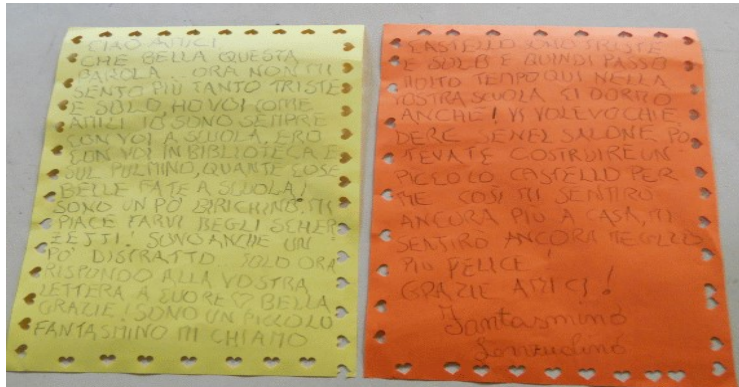 CIAO AMICI
CHE BELLA QUESTA
PAROLA... ORA NON MI
SENTO PIÙ TANTO TRISTE
E SOLO HO VOI COME
AMICI IO SONO SEMPRE
CON VOI A SCUOLA, ERO
CON VOI IN BIBLIOTECA E
SUL PULMINO, QUANTE COSE
BELLE FATE A SCUOLA!
SONO UN PO' BIRICHINO. MI
PIACE FARVI DEGLI SCHER
ZETTI! SONO ANCHE UN
PO' DISTRATTO SOLO ORA
RISPONDO ALLA VOSTRA
LETTERA A CUORE ♡ BELLA
GRAZIE! SONO UN PICCOLO
FANTASMINO MI CHIAMO
CASTELLO SONO TRISTE
E SOLO E QUINDI PASSO
MOLTO TEMPO QUI NELLA
VOSTRA SCUOLA CI DORMO
ANCHE! VI VOLEVO CHIE
DERE SE NEL SALONE, PO
TEVATE COSTRUIRE UN
PICCOLO CASTELLO PER
ME COSÌ MI SENTIRÒ
ANCORA PIÙ A CASA, MI
SENTIRÒ ANCORA MEGLIO
PIÙ FELICE!
GRAZIE AMICI!
Fantasmino